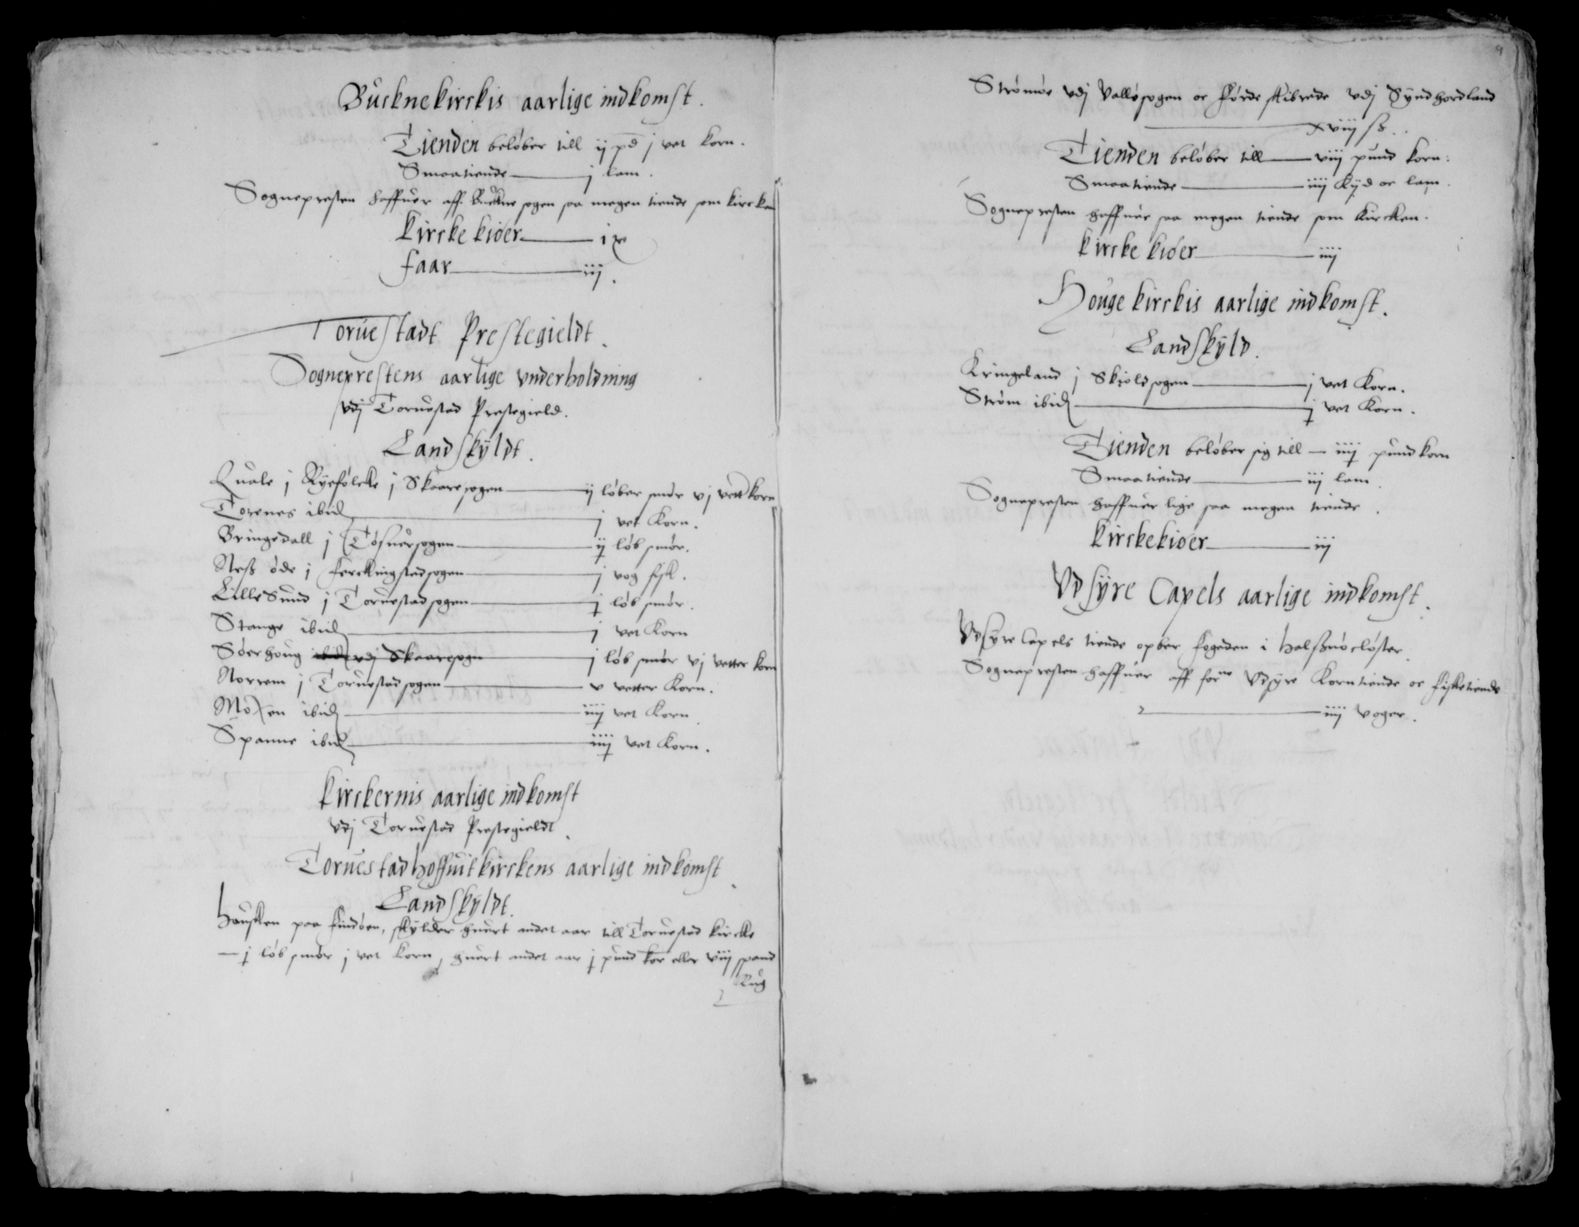 Bucknekirckis aarlige indkomst.
Tienden beløber till ij pd j vet korn.
Smaatiende j lam.
Sognepresten haffuer aff Buckne sogen saa megen tiende som kircken
Kircke kiøer ix
faar iij.
Toruestadt Prestegieldt.
Sogneprestens aarlige vnderholdning
vdj Toruestad Prestegield.
Landskyldt.
Quale j Ryefølcke j Skaaresogen ij løber smør vj vett korn
Torenes ibid j vet Korn.
Bringedall j sogen ij løb smør.
Ness øde j ferckingstadsogen j vog fisk.
Lille Sund j Toruestadsogen j løb smør.
Stange ibid j vet Korn
Søerhoug ibid vdj Skaaresogn j løb smør vj vetter korn
Norrem j Toruestadsogen v vetter Korn.
ibid iiij vet Korn.
Spanne ibid iiij vet Korn.
Kirckernis aarlige indkomst
vdj Toruestad Prestegieldt.
Toruestad hoffuitkirckens aarlige indkomst.
Landskyldt.
Hausken paa findøen, skylder huert andet aar till Toruestad kircke
j løb smør j vet korn, huert andet aar j pund kor eller viij spand
Rug
9
Strømøe vdj Valløsogen oc førde skibrede vdj Syndhordland
xviij ß.
Tienden beløber till viij pund korn:
Smaatiende iiij Kyd oc lam.
Sognepresten haffuer saa megen tiende som Kircken.
Kircke kiøer iiij
Houge kirckis aarlige indkomst.
Landskyld.
Kringeland j Skioldsogen j vet Korn.
Strøm ibid j vet Korn.
Tienden beløber sig till iiij pund korn
Smaatiende iij lam.
Sognepresten haffuer lige saa megen tiende.
Kirckekiøer iij
Vdsyre Capels aarlige indkomst.
Vdsyre Capels tiende opber fogeden i Halsnøcloster.
Sognepresten haffuer aff forne Vdsyre Korntiende oc fisketiende
iiij voger.